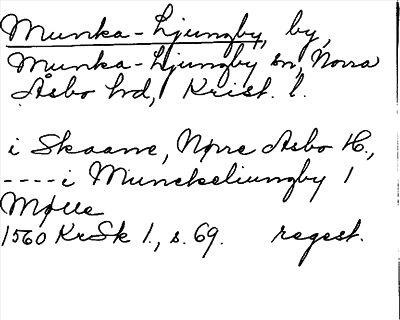 Munka-Ljungby, by,
Munka-Ljungby sn, Norra
Åsbo hd, Krist. l.
i Skaane, Nørre Asbo H.,
---- i Munckeliungby 1
Mølle
1560 KrSk 1., s. 69. regest.